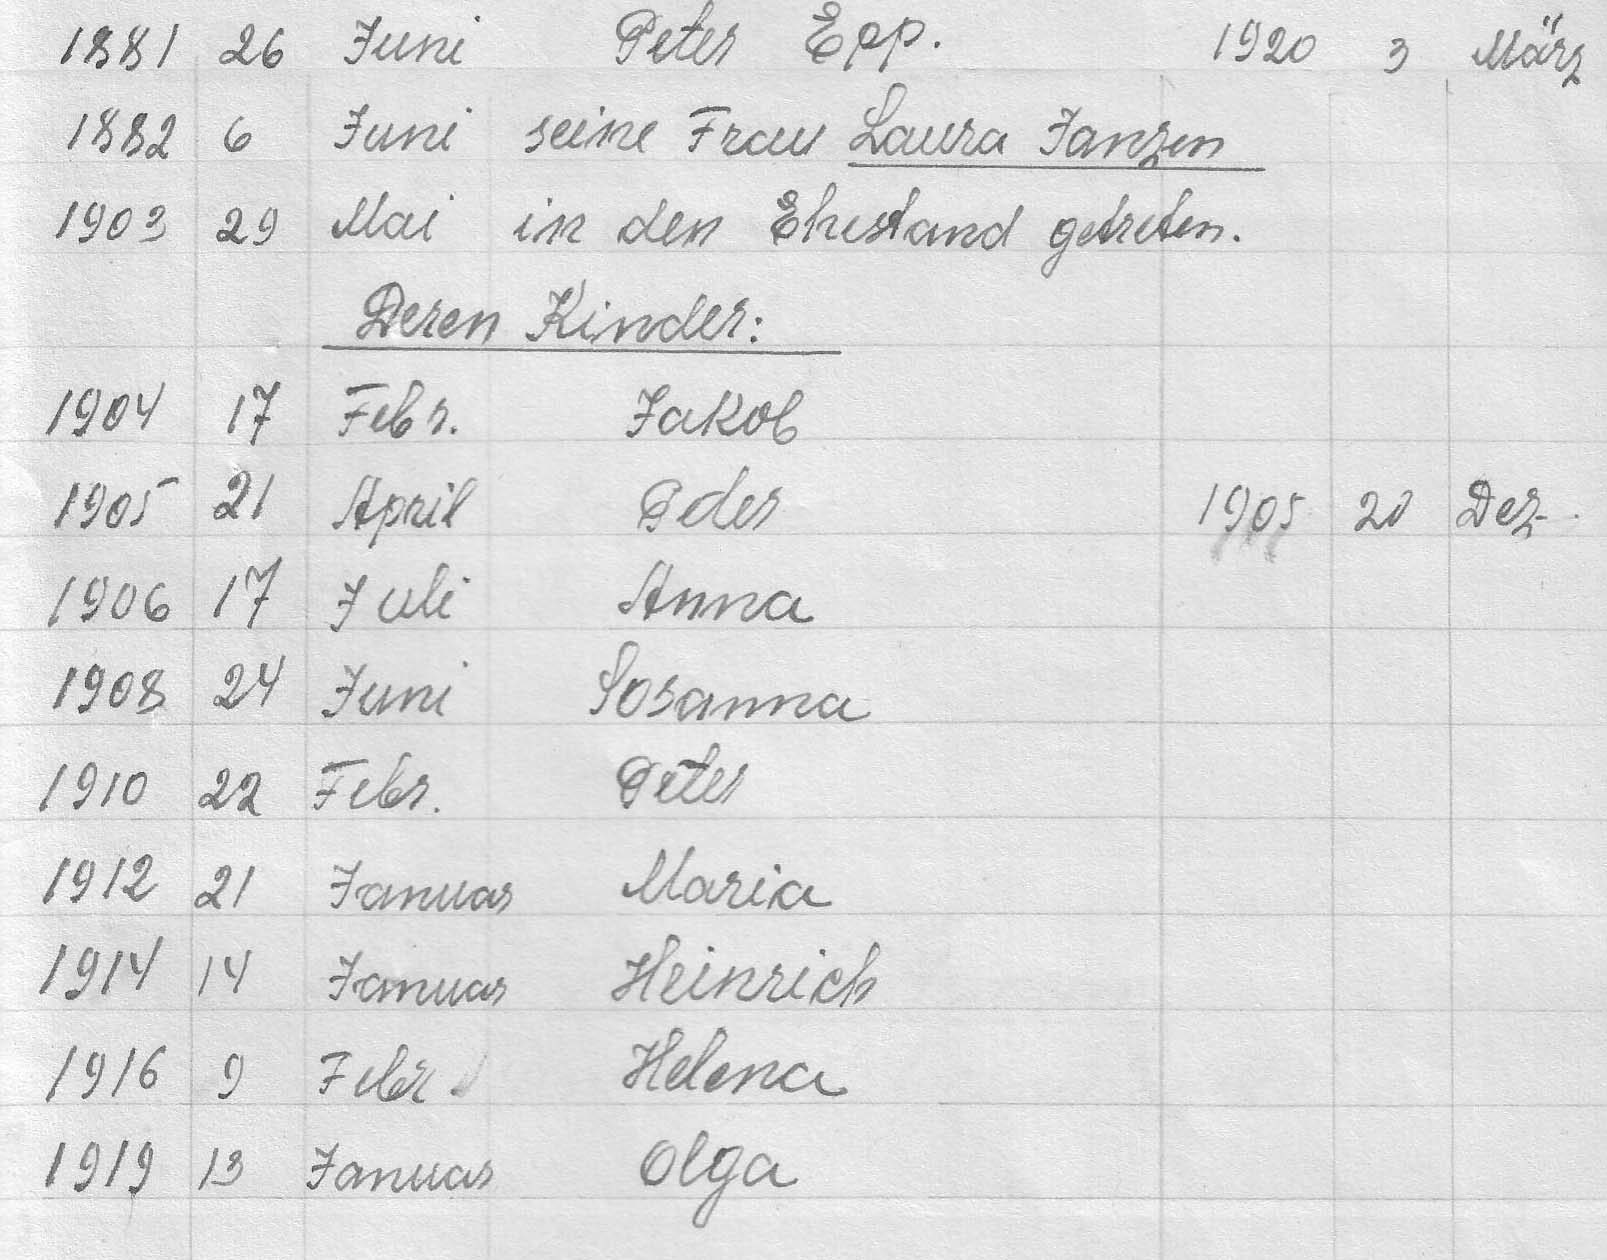 1881 26 Juni Peter Epp. 1920 3 März
1882 6 Juni seine Frau Laura Janzen
1903 29 Mai in den Ehestand getreten.
Deren Kinder:
1904 17 Febr. Jakob
1905 21 April Peter 1905 20 Dez.
1906 17 Juli Anna
1908 24 Juni Sosanna
1910 22 Febr. Peter
1912 21 Januar Maria
1914 14 Januar Heinrich
1916 9 Febr. Helena
1919 13 Januar Olga